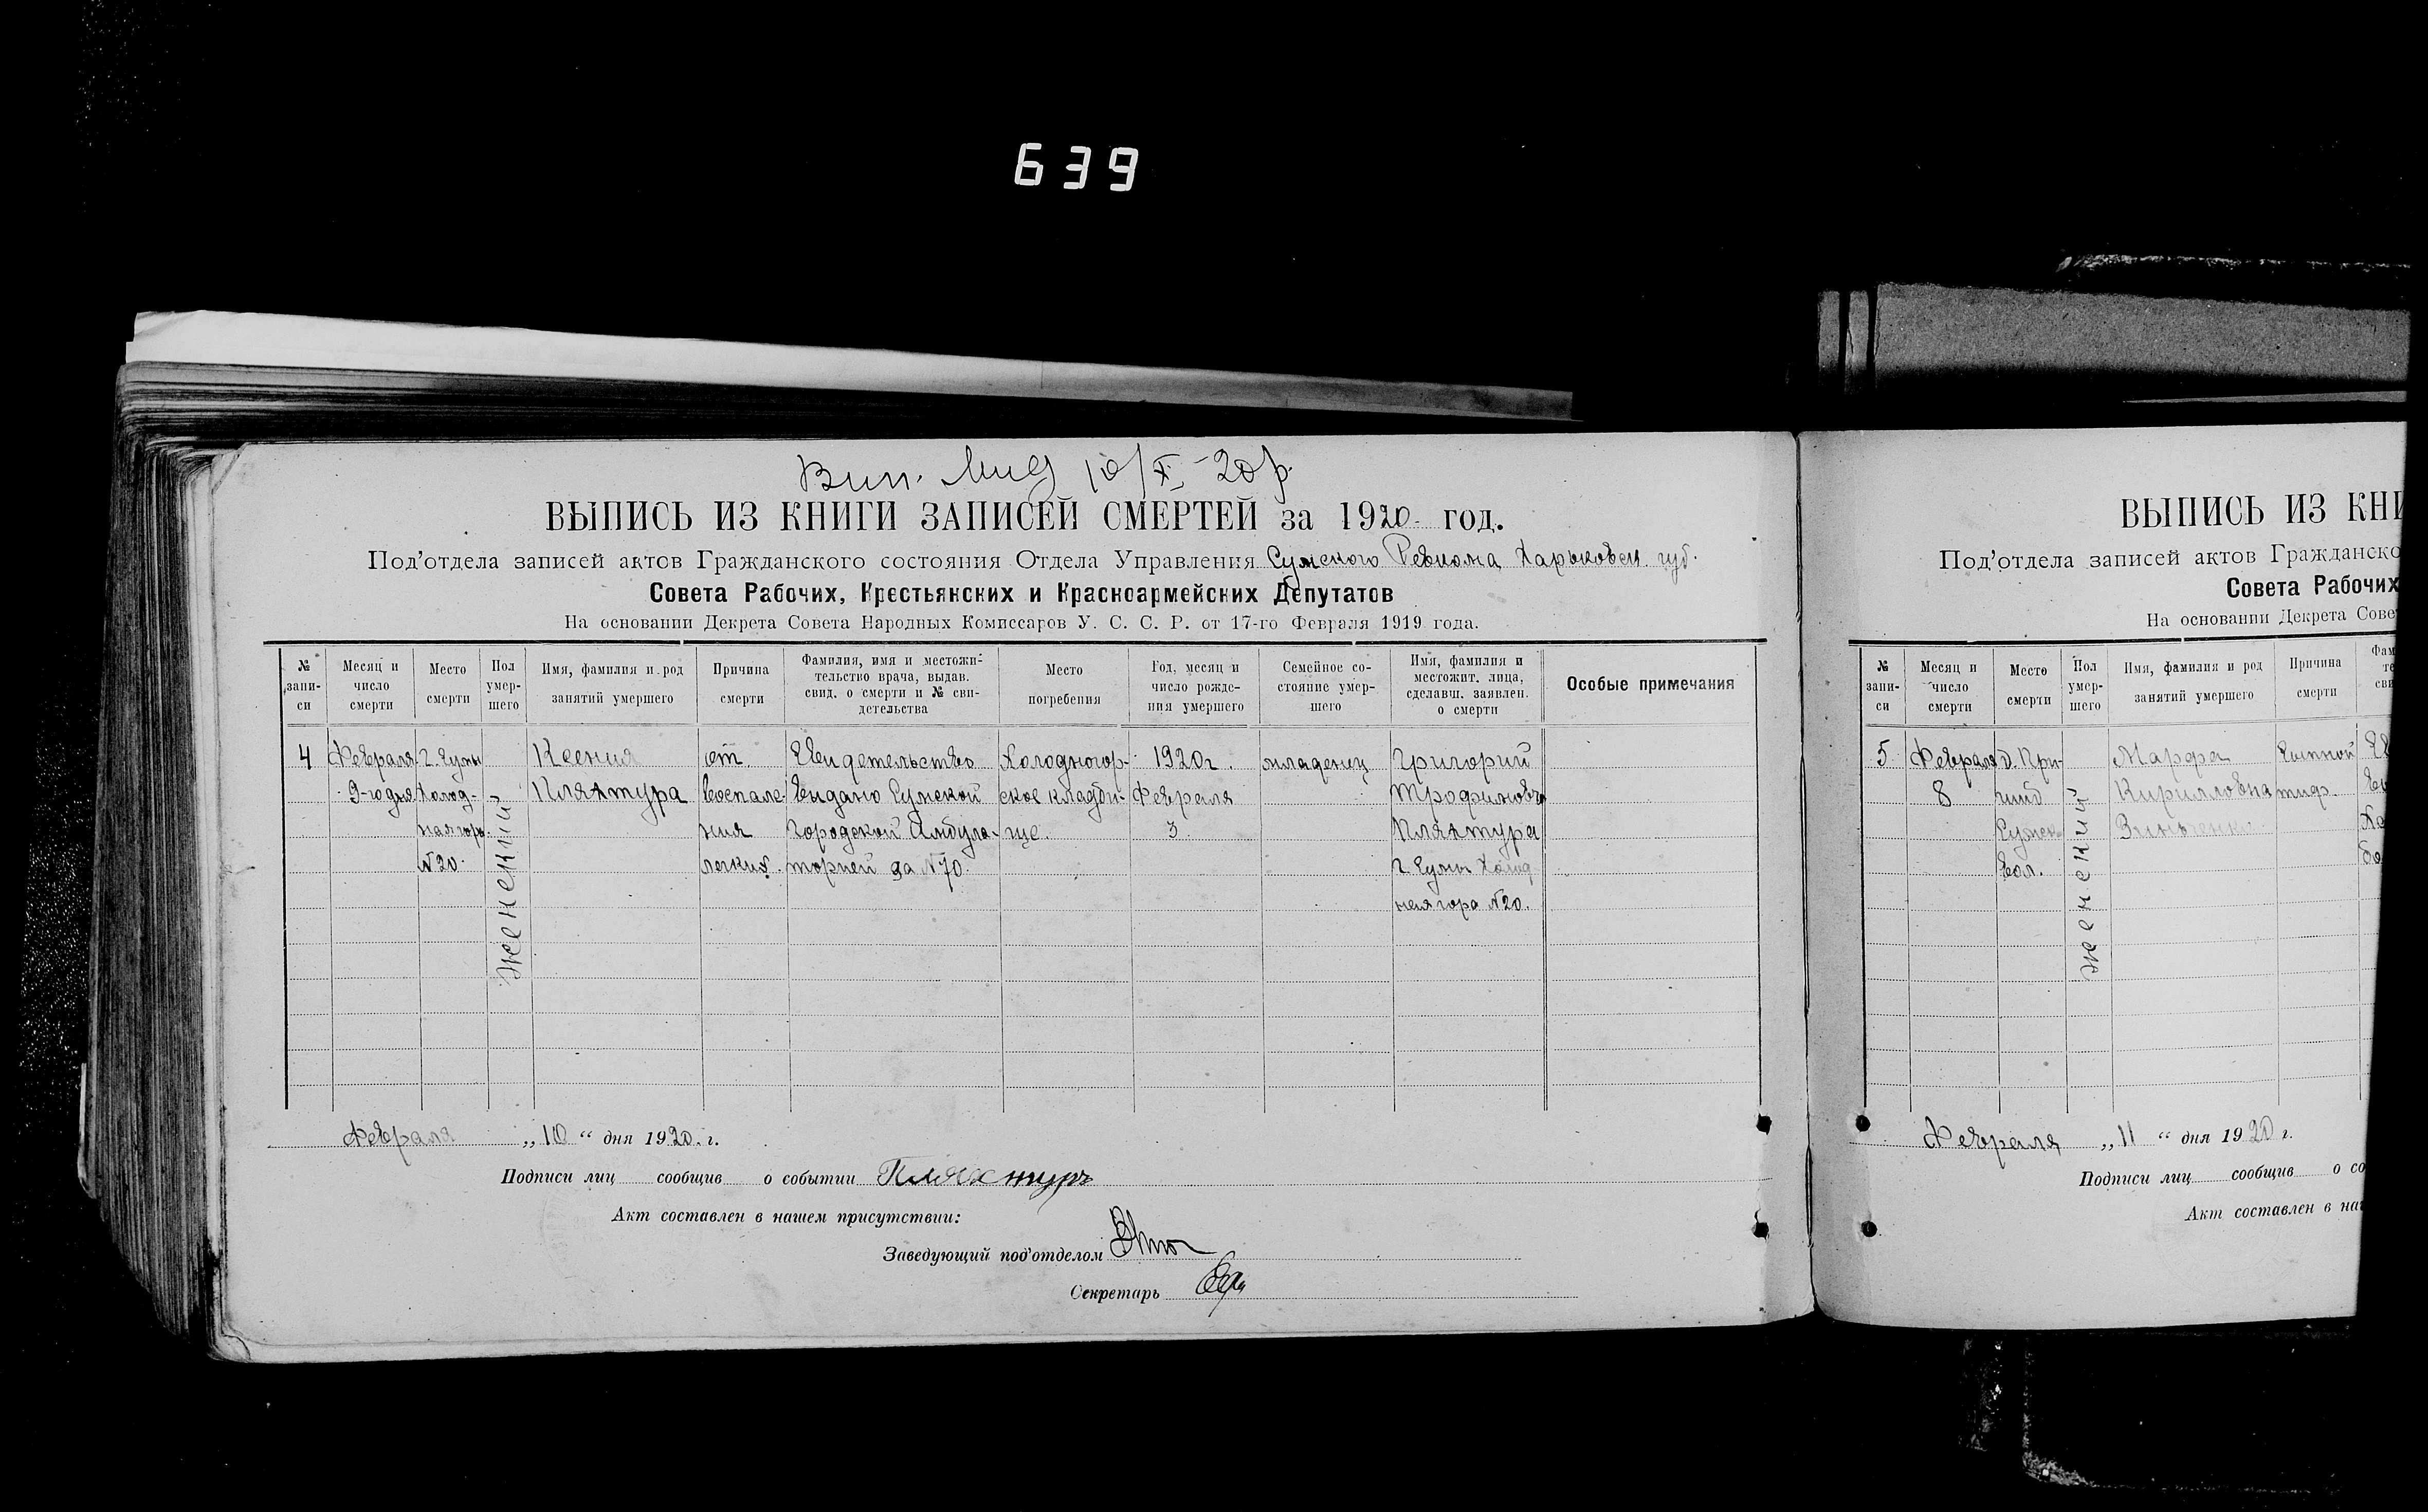 639
Вип. 10/X-20р.
ВЫПИСЬ ИЗ КНИГИ ЗАПИСЕЙ СМЕРТЕЙ за 1920 год.
Под'отдела записей актов Гражданского состояния Отдела Управления Сумского Ревкома Харьковск. губ.
Совета Рабочих, Крестьянских и Красноармейских Депутатов
На основании Декрета Совета Народных Комиссаров У. С. С. Р. от 17-го Февраля 1919 года.
№ запи-
си
Месяц и
число
смерти
Место
смерти
Пол
умер-
шего
Имя, фамилия и род
занятий умершего
Причина
смерти
Фамилия, имя и местожи-
тельство врача, выдав.
свид. о смерти и № сви-
детельства
Место
погребения
Год, месяц и
число рожде-
ния умершего
Семейное со-
стояние умер-
шего
Имя, фамилия и
местожит. лица,
сделавш. заявлен.
о смерти
Особые примечания
4
Февраля
9-го дня
г. Сумы
Холод-
ная гора
№ 20.
женский
Ксения
Пляхтура
от
воспале-
ния
легких.
Свидетельство
выдано Сумской
Городской Амбула-
торией за № 70.
Холодногор-
ское кладби-
ще.
1920 г.
Февраля
3
младенец
Григорий
Трофимович
Пляхтура
г. Сумы Холод
ная гора № 20.
Февраля „10“ дня 1920 г.
Подписи лиц сообщив о событии Пляхтуръ
Акт составлен в нашем присутствии:
Заведующий под'отделом
Секретарь
ВЫПИСЬ ИЗ КНИ
Под'отдела записей актов Гражданско
Совета Рабочих
На основании Декрета Сове
№
запи-
си
Месяц и
число
смерти
Место
смерти
Пол
умер-
шего
Имя, фамилия и род
занятий умершего
Причина
смерти
Фам
те
сви
5
Февраля
8
Сумск.
вол.
женский
Марфа
Кирилловна
Зинченко
Сыпной
тиф.
Февраля „11“ дня 1920 г.
Подписи лиц сообщив о со
Акт составлен в на